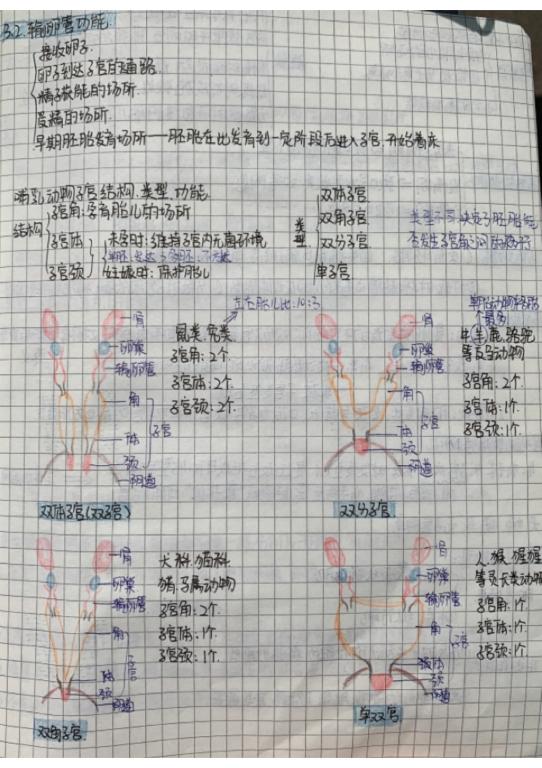 3.2.输卵管功能
接收卵子.
卵子到达子宫的通路.
精子获能的场所.
受精的场所.
早期胚胎发育场所——胚胎在此发育到一定阶段后进入子宫,开始着床
哺乳动物子宫结构、类型、功能
结构
子宫角:孕育胎儿的场所
子宫体
子宫颈
未孕时:维持子宫内无菌环境
妊娠时:保护胎儿
类型
双体子宫
双角子宫
双分子宫
单子宫
类型不同决定了胚胎能
否发生子宫角之间的移行
左右胎儿比:10:3
肾
卵巢
输卵管
角
体
颈
子宫
阴道
鼠类、兔类
子宫角:2个.
子宫体:2个.
子宫颈:2个.
双体子宫(双子宫)
最多
肾
卵巢
输卵管
角
体
颈
子宫
阴道
牛(羊)鹿、骆驼
等反刍动物
子宫角:2个
子宫体:1个
子宫颈:1个.
双分子宫
肾
卵巢
输卵管
角
体
颈
子宫
阴道
犬科、猫科
猪、马属动物
子宫角:2个
子宫体:1个
子宫颈:1个.
双角子宫
肾
卵巢
输卵管
角
体
颈
子宫
阴道
人、猴、猩猩
等灵长类动物
子宫角:1个
子宫体:1个
子宫颈:1个.